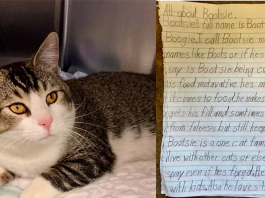 All about Bootsie.
Bootsies full name is Boot
Boogie. I call Bootsie m
names like Boots or if hes
spay is Bootsie being c
his food motivative hes m
it comes to food. he makes
gets his fill and somtimes
from fulness but still keep
Bootsie is a one cat fam
live with other cats or els
spray even if hes fixed. He
with kids. Also he loves t